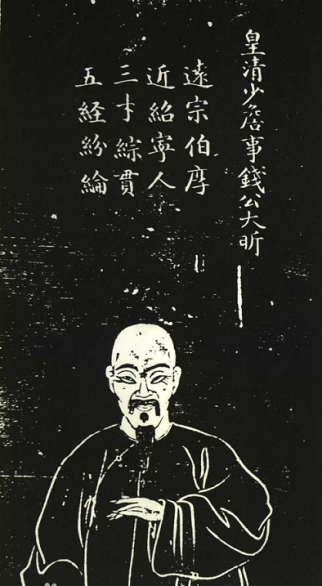 皇清少詹事錢公大昕
遠宗伯厚
近紹寧人
三才綜貫
五經紛綸